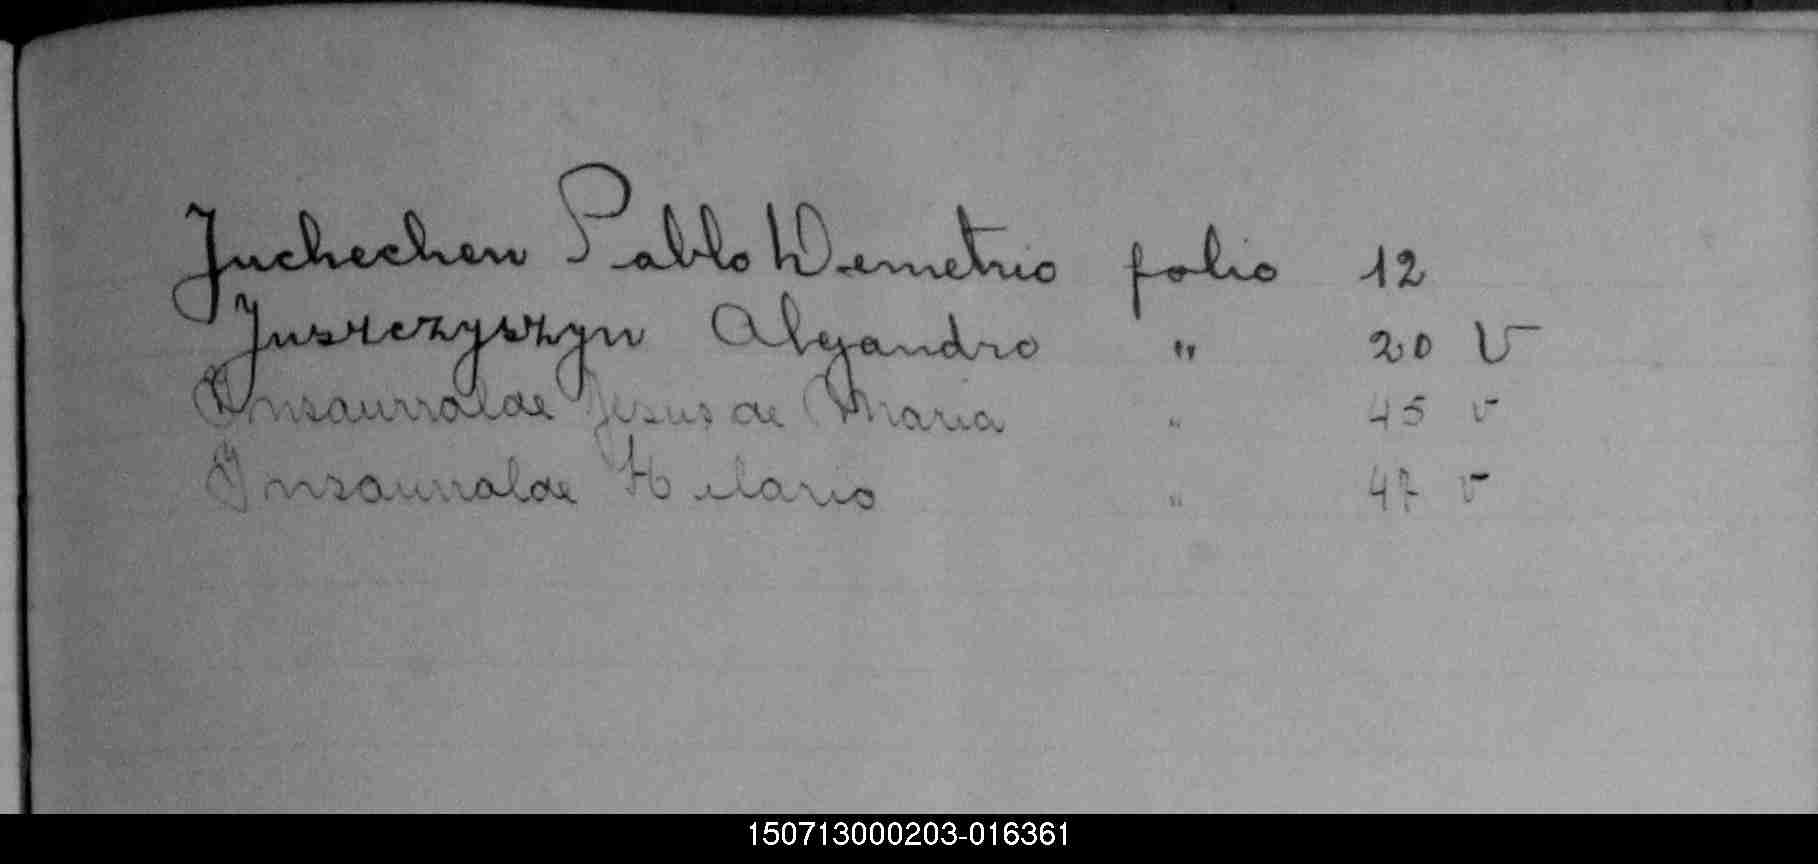 Juchechen Pablo Demetrio folio 12
Juszczyszyn Alejandro " 20 V
Insaurralde Jesus de Maria " 45 v
Insaurralde Hilario " 47 v
150713000203-016361